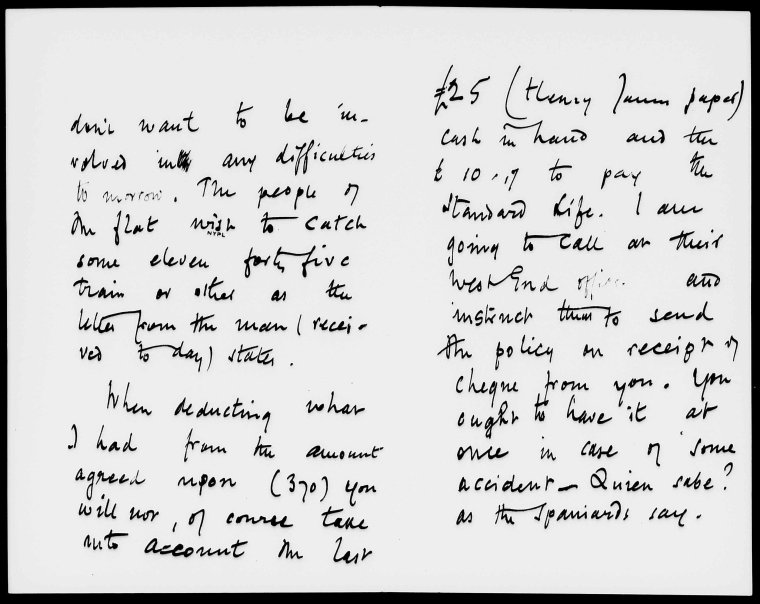 don't want to be in-
volved in any difficulties
to morrow. The people of
the flat wish to catch
NYPL
some eleven forty five
train or other as the
letter from the man (recei-
ved to day) states.
When deducting what
I had from the amount
agreed upon (370) you
will not, of course take
into account the last
£25 (Henry James paper)
cash in hand and the
£ 10.17 to pay the
Standard Life. I am
going to call at their
West End office and
instruct them to send
the policy on receipt of
cheque from you. You
ought to have it at
once in case of some
accident – Quien sabe?
as the Spaniards say.